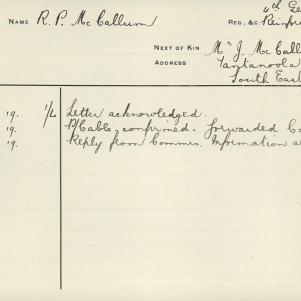 4th Ge
NAME R. P. McCallum REG. &C. Reinf
NEXT OF KIN Mr J. McCall
ADDRESS Tantanoola
South East
19. 1/L Letter acknowledged.
19. P/Cable confirmed. Forwarded Co
19. Reply from Commrs. Information s